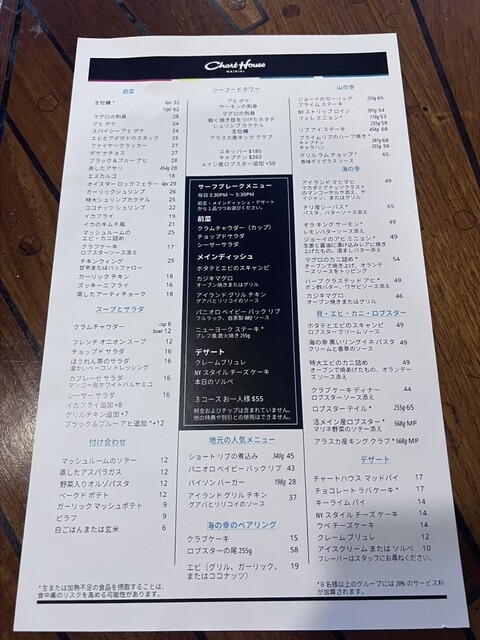 Chart House
WAIKIKI
前菜
生牡蠣 * 6pc 32
12pc 62
マグロの刺身 28
アヒ ポケ 24
スパイシー アヒ ポケ 24
エビとアボガドのスタック 25
ファイヤークラッカー 27
ポケ ナチョス 27
ブラック＆ブルー アヒ 28
蒸したアサリ 454g 28
エスカルゴ 18
オイスターロックフェラー 4pc 29
ガーリックシュリンプ 26
特大シュリンプカクテル 25
ココナッツ シュリンプ 22
イカフライ 19
イカのキムチ風 21
マッシュルームの 25
エビ・カニ詰め
クラブケーキ 17
ロブスターソース添え
チキンウィング 25
甘辛またはバッファロー
ガーリック チキン 18
ズッキーニ フライ 16
蒸したアーティチョーク 18
スープとサラダ
クラムチャウダー cup 6
bowl 12
フレンチ オニオン スープ 12
チョップド サラダ 16
ほうれん草のサラダ 16
温かいベーコンドレッシング
カプレーゼ サラダ 16
マンゴー風ホワイトバルサミコ
シーザー サラダ 16
イカフライ追加 +8
グリルチキン追加 +7
ブラック＆ブルー アヒ追加 *+12
付け合わせ
マッシュルームのソテー 12
蒸したアスパラガス 12
野菜入りオルゾパスタ 12
ベークド ポテト 12
ガーリック マッシュポテト 9
ピラフ 9
白ごはんまたは玄米 6
*生または加熱不足の食品を摂取することは、
食中毒のリスクを高める可能性があります。
シーフードタワー
アヒ ポケ
サーモンの刺身
マグロの刺身
軽く焼き目をつけたホタテ
シュリンプ カクテル
生牡蠣
アラスカ産キング クラブ
スキッパー $185
キャプテン $265
メイン産ロブスター追加 +50
サーフブレークメニュー
毎日3:30PM ～ 5:30PM
前菜・メインディッシュ・デザート
から1品づつお選びください。
前菜
クラムチャウダー（カップ）
チョップドサラダ
シーザーサラダ
メインディッシュ
ホタテとエビのスキャンピ
カジキマグロ
オーブン焼きまたはグリル
アイランド グリル チキン
グアバとリリコイのソース
パニオロ ベイビー バックリブ
フルラック、自家製 BBQ ソース
ニューヨーク ステーキ *
プレフ風 直火焼き 255g
デザート
クレームブリュレ
NY スタイル チーズ ケーキ
本日のソルベ
3コース お一人様 $55
税金およびチップは含まれていません。
他の特典や割引との併用はできません。
地元の人気メニュー
ショートリブの煮込み 340g 45
パニオロ ベイビー バック リブ 43
バイソン バーガー 198g 28
アイランド グリル チキン 37
グアバとリリコイのソース
海の幸のペアリング
クラブケーキ 15
ロブスターの尾 255g 58
エビ（グリル、ガーリック、 19
またはココナッツ）
山の幸
ジョーイのガーリック 255g 65
プライム ステーキ
NY ストリップ ロイン 397g 54
フィレ ミニョン * 170g 53
255g 58
リブ アイ ステーキ 454g 68
プライムリブのハーブ焼き *
キャプテン 397g 68
キャラハン 255g 56
グリル ラム チョップ * 65
香味デミグラスソース
海の幸
アイランド マヒマヒ 49
マカダミアナッツクラスト
のマンゴーサルサ添え、ケ
イジャン、またはグリル
チリ産シーバス * 65
パスタ、バターソース添え
オラ キング サーモン * 49
レモンバターソース添え
ジョーイのアヒ ミニョン * 49
生姜と醤油に漬け込みレアに焼き
上げたもの。澄ましバター添え
マグロのカニ詰め * 54
オーブンで焼き上げ、オランデ
ーズソースをトッピング
ハーブ クラステッド アヒ * 49
ポン酢バター、ワサビソース添え
カジキマグロ 46
オーブン焼きまたはグリル
貝・エビ・カニ・ロブスター
ホタテとエビのスキャンピ 49
ロブスタークリームソース
海の幸 黒いリングイネ パスタ 49
クリームと香草のソース
特大エビのカニ詰め 49
オーブンで焼きあげたもの、オランデー
ズソース添え
クラブ ケーキ ディナー 44
ロブスターソース添え
ロブスター テイル * 255g 65
活メイン産ロブスター * 568g MP
マリネ野菜のソテー添え
アラスカ産キング クラブ * 568g MP
デザート
チャートハウス マッドパイ 17
チョコレート ラバ ケーキ * 17
キーライム パイ 14
NY スタイル チーズ ケーキ 14
ウベ チーズ ケーキ 14
クレーム ブリュレ 12
アイスクリーム または ソルベ 10
フレーバーはスタッフにお尋ねください。
*8 名様以上のグループには 20% のサービス料
が加算されます。